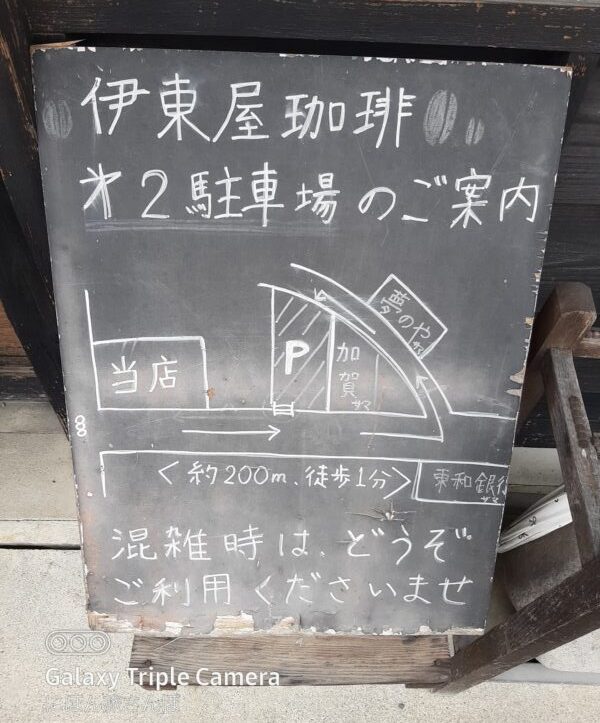 伊東屋珈琲
㐧2駐車場のご案内
夢のやさま
P
加賀サマ
当店
<約200m、徒歩1分>
東和銀行サマ
混雑時は、どうぞ
ご利用くださいませ
Galaxy Triple Camera